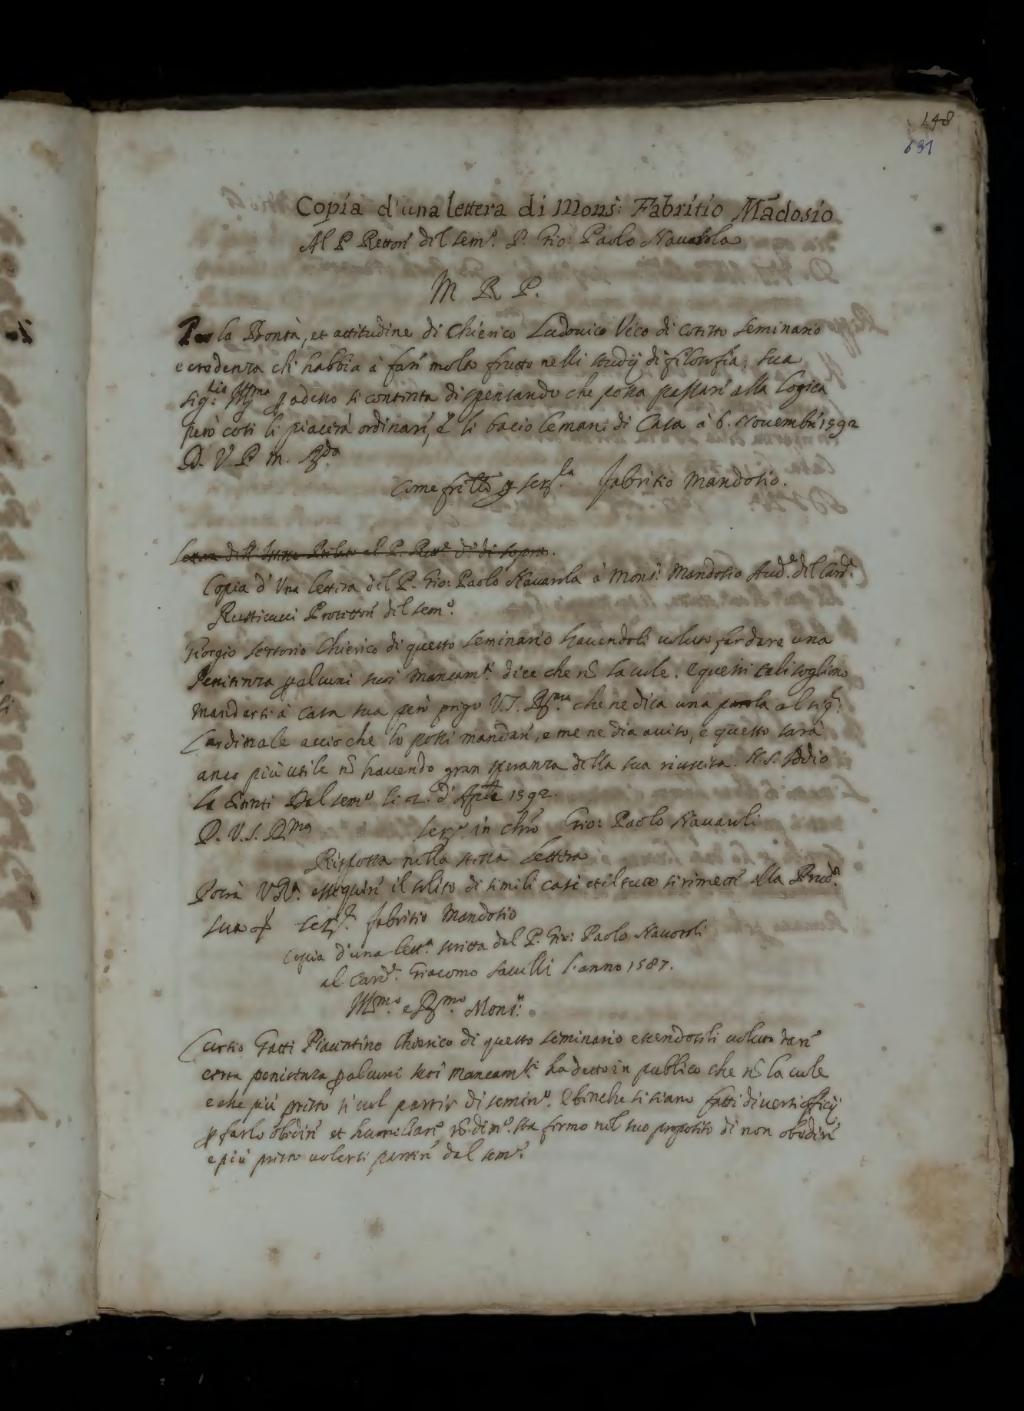 148
631
Copia d'una lettera di Mons: Fabritio Mādosio
Al P Rettorʳ del semᵒ. P. Gio: Paolo Nauarola
M R P.
Per la Bontà, et attitudine di Chierico Ludouico Vico di cotesto seminario
e credenza ch' habbia à farʳ molto frutto nelli studij di filosofia, sua
sigʳⁱᵃ Illᵐᵃ ꝑ adesso si contenta dispensando che possa passarʳ alla logica
però così li piacerà ordinarʳ, & li bacio le mani di Casa à 6. Novembrʳ 1592
D. V P m. Rᵈᵃ
Come frēllo ꝑ serᵘⁱʳˡᵃ Fabritio Mandosio.
Copia d' Una lettera del P. Gio: Paolo Nauarola à Monsʳ. Mandosio Audʳᵉ. del Cardˡᵉ.
Rusticucci Protettorʳ del semᵒ.
Giorgio Sertorio Chierico di questo seminario hauendoli uoluto far dare una
Penitenza ꝑ alcuni suoi mancamᵗⁱ. dice che nō la uule. e questi tali sogliono
mandarsi à casa sua però prego V.S. Rᵐᵃ che ne dica una parola al sigʳ:
Cardinale acciò che lo possi mandarʳ, e me ne dia auiso, e questo sarà
anco più utile nō hauendo gran speranza della sua riuscita. N.S. Iddio
la Contenti Dal semᵒ li 2. d' Aprile 1592.
D. V. S. Rᵐᵃ seruʳᵉ in chrō Gio: Paolo Nauaroli
Risposta nella stessa lettera
Potrà V.Rᵃ. essequirʳ il solito di simili casi et il tutto si rimetteʳ alla Prudᵃ.
sua seruʳᵉ. Fabritio Mandosio
Copia d'una lettʳᵃ scritta dal P. Gio: Paolo Nauaroli
al Cardˡᵉ. Giacomo Sauelli l'anno 1587.
Illᵐᵒ e Rᵐᵒ Monsʳᵉ.
Curtio Gatti Piacentino Chierico di questo seminario essendoseli uoluto darʳ
certa penitenza ꝑ alcuni suoi mancamᵗⁱ ha detto in publico che nō la uule
e che più presto si uol partir di seminᵒ. & benche si siano fatti diuersi officij
ꝑ farlo obedirʳ et humiliarʳ, nōdimᵒ. sta fermo nel suo proposito di non obedirʳ
e più presto uolersi partirʳ dal semᵒ.